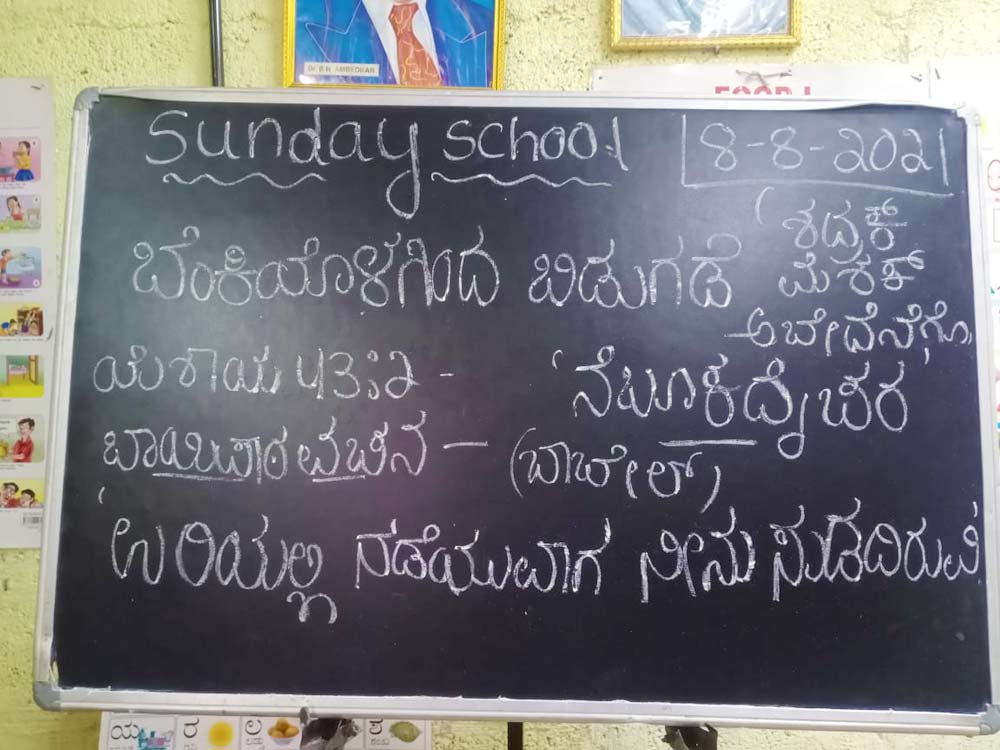 Dr. B.R. AMBEDKAR
Sunday school 8-8-2021
ಬೆಂಕಿಯೊಳಗಿಂದ ಬಿಡುಗಡೆ
(ಶದ್ರಕ್
ಮೆಶಕ್
ಅಬೇದೆನೆಗೊ)
ಯೆಶಾಯ 43:2 - 'ನೆಬೂಕದ್ನೆಚರ
ಬಾಯಿಪಾಠ ವಚನ — (ಬಾಬೇಲ್)
'ಉರಿಯಲ್ಲಿ ನಡೆಯುವಾಗ ನೀನು ಸುಡದಿರುವಿ'
ಯ ರ ಲ